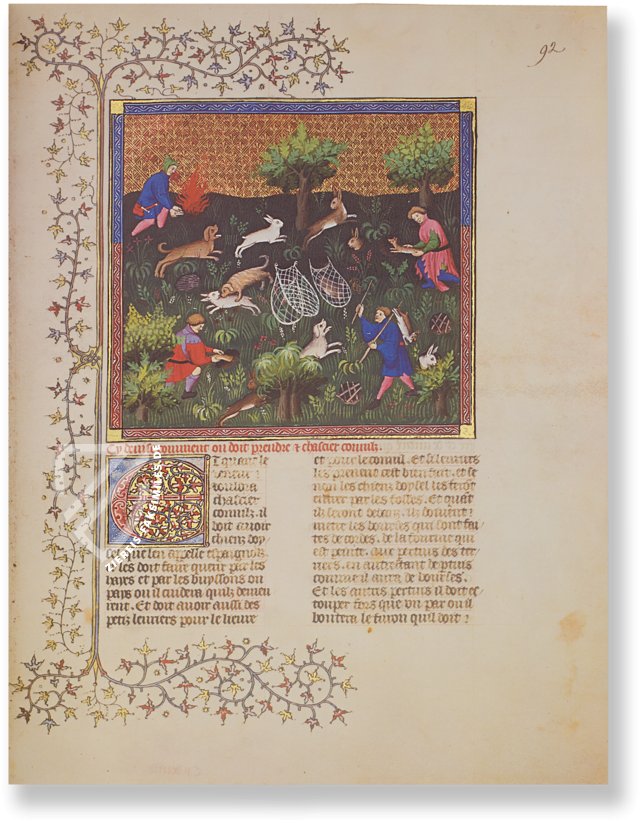 92
Cy devise comment on doit prendre et chassier connilz.
Et quant le
veneur
vouldra
chassier
connilz, il
doit avoir
chiens doy
que len appelle espaignolz
les doit faire querir par les
hayes et par les buyssons ou
pays ou il cuidera quilz demeu
rent. Et doit avoir aussi des
petiz levriers pour le lievre
et pour le connil. Et se levriers
les prennent cest bien fait, et se
non les chiens doysel les feront
entrer par les fosses. Et quant
ilz seront dedanz, ilz doivent
metre les bourses qui sont fai
tes de cordes, de la faconn qui
est peinte, aux pertuis des ter
riers, en autrestant de pertuis
comme il aura de bourses.
Et les autres pertuis il doit es
touper fors que un par ou il
boutera le furon qui doit